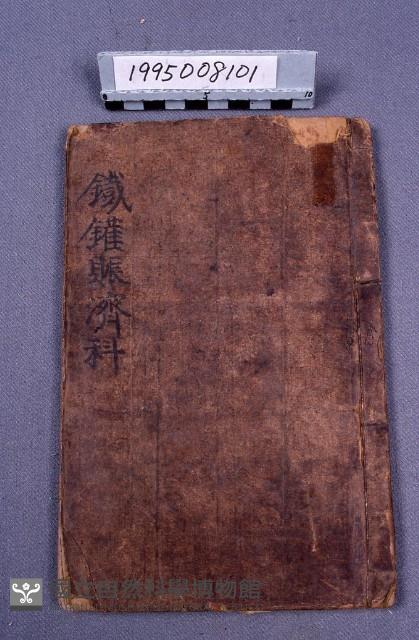 1995008101
0 5 10
鐵鏙賑濟科
國立自然科學博物館